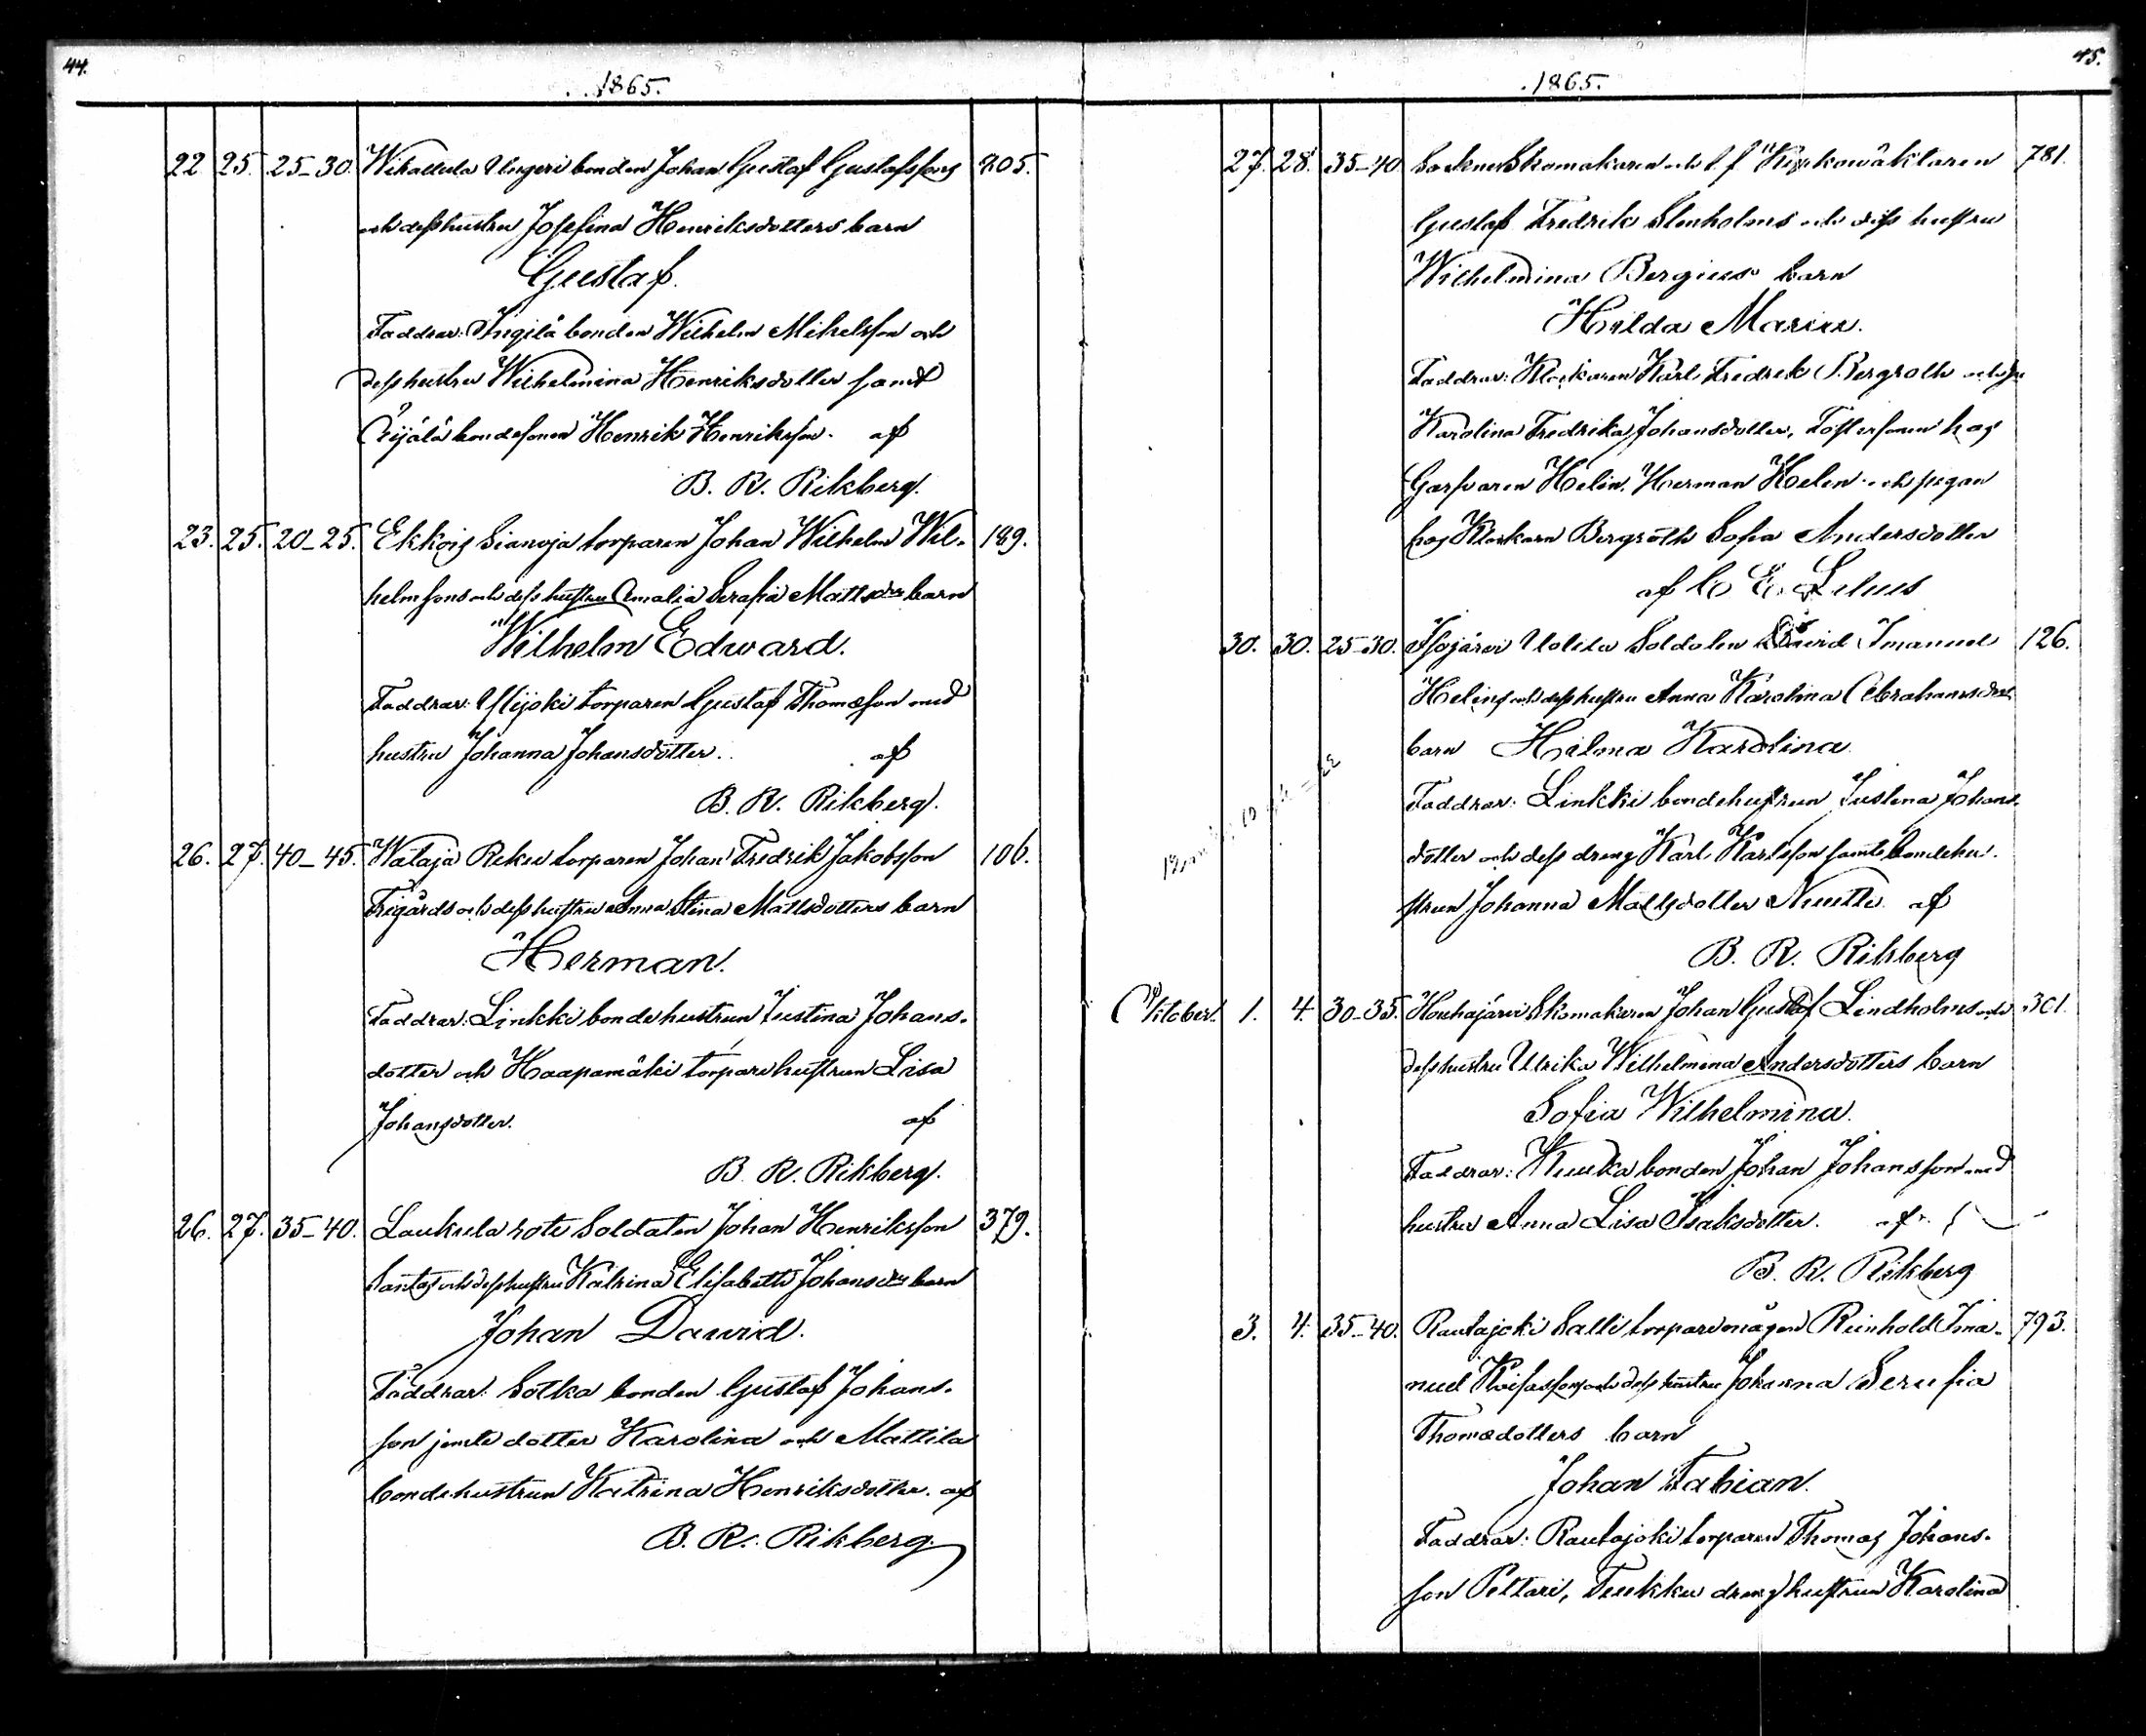 44.
1865.
22. 25. 25-30. Wikattula Ungeri bonden Johan Gustaf Gustafssons 205.
och dess hustru Josefina Henriksdotters barn
Gustaf.
Faddrar: Ingilä bonden Wilhelm Mikelsson och
dess hustru Wilhelmina Henriksdotter samt
bondesonen Henrik Henriksson. af
B. R. Rikberg.
23. 25. 20-25. Ekkois torparen Johan Wilhelm Wil- 189.
helmssons och dess hustru Amalia Serafia Mattsdrs barn
Wilhelm Edward.
Faddrar: Ylijoki torparen Gustaf Thomasson med
hustru Johanna Johansdotter. af
B. R. Rikberg.
26. 27. 40-45. Wataja Reku torparen Johan Fredrik Jakobsson 106.
Frigårds och dess hustru Anna Stina Mattsdotters barn
Herman.
Faddrar: Linkki bondehustrun Justina Johans-
dotter och Haapamäki torparehustrun Lisa
Johansdotter. af
B. R. Rikberg.
26. 27. 35-40. Laukula rote Soldaten Johan Henriksson 379.
och dess hustru Katrina Elisabeth Johansdrs barn
Johan Dawid.
Faddrar: Sotka bonden Gustaf Johans-
son jemte dotter Karolina och Mattila
bondehustrun Katrina Henriksdotter. af
B. R. Rikberg.
45.
1865.
27. 28. 35-40. Sockneskomakaren och t. f. Kyrkowäktaren 781.
Gustaf Fredrik Stenholms och dess hustru
Wilhelmina Bergius barn
Hilda Maria.
Faddrar: Klockaren Karl Fredrik Bergroth och
Karolina Fredrika Johansdotter, Fostersonen hos
Garfvaren Helin, Herman Helen och pigan
hos Klockarn Bergroth Sofia Andersdotter
af
30. 30. 25-30. Isojärvi Uotila Soldaten Dawid Imanuel 126.
Helins och dess hustru Anna Karolina Abrahamsdrs
barn Hilma Karolina.
Faddrar: Linkki bondehustrun Justina Johans-
dotter och dess dreng Karl Karlsson samt bondehu-
strun Johanna Mattsdotter af
B. R. Rikberg
October. 1. 4. 30-35. Houhajärvi Skomakaren Johan Gustaf Lindholms och 301.
dess hustru Ulrika Wilhelmina Andersdotters barn
Sofia Wilhelmina.
Faddrar: Kuukka bonden Johan Johansson med
hustru Anna Lisa Isaksdotter. af
B. R. Rikberg
3. 4. 35-40. Rautajoki Salli torparemågen Reinhold Ima- 793.
nuel och dess hustru Johanna Serafia
Thomædotters barn
Johan Fabian.
Faddrar: Rautajoki torparen Thomas Johans-
son Pettari, Tuukku drenghustrun Karolina